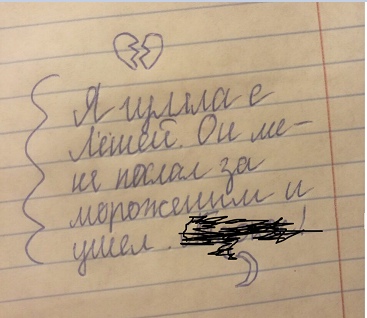 Я гуляла с
Лёшей. Он ме-
не послал за
мороженим и
ушел.